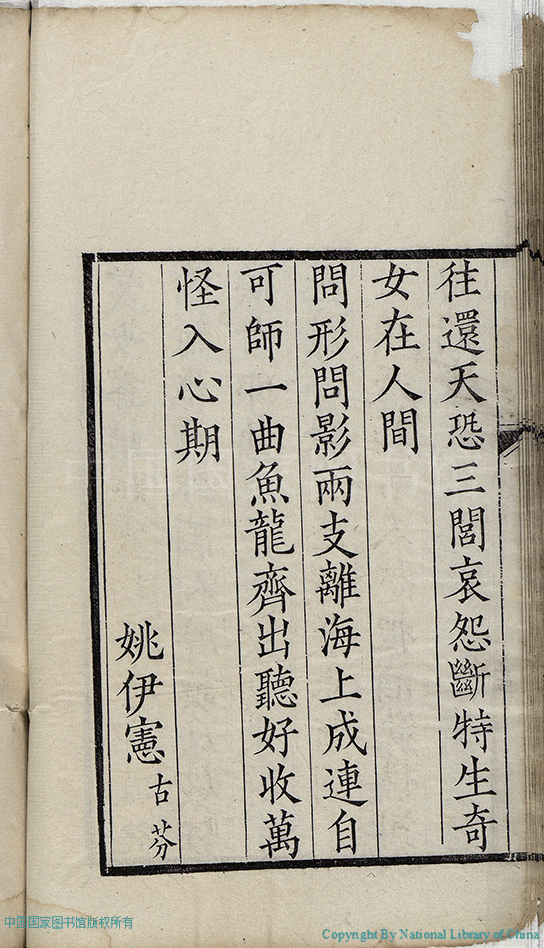 往還天恐三閭哀怨斷特生奇
女在人間
問形問影兩支離海上成連自
可師一曲魚龍齊出聽好收萬
怪入心期
姚伊憲古芬
中国国家图书馆版权所有
Copyright By National Library of China